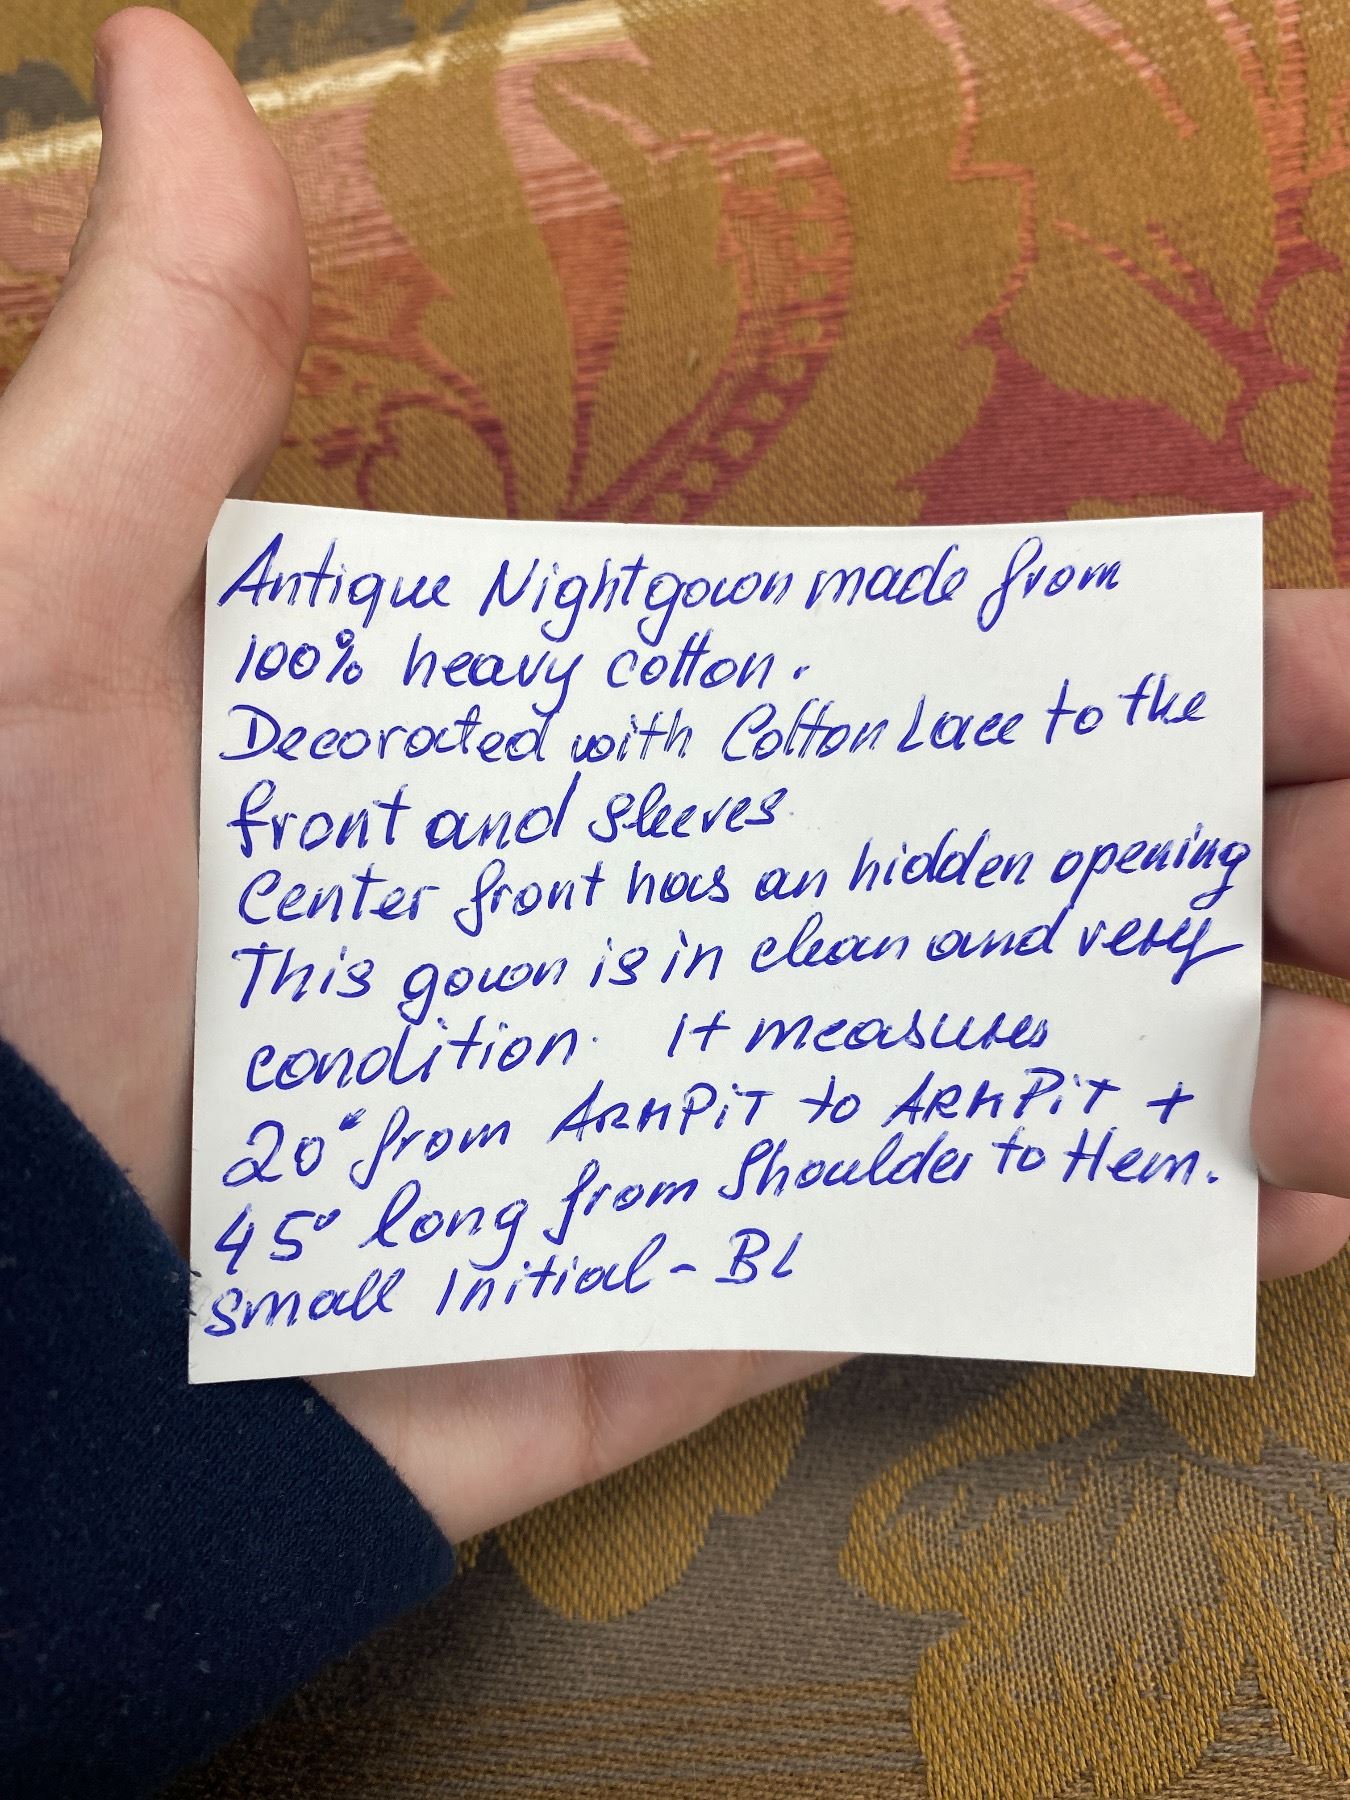 Antique Nightgown made from
100% heavy cotton.
Decorated with Cotton Lace to the
front and sleeves
Center front has an hidden opening
This gown is in clean and very
condition. It measures
20" from ARMPiT to ARMPiT +
45" long from Shoulder to Hem.
small Initial - BL